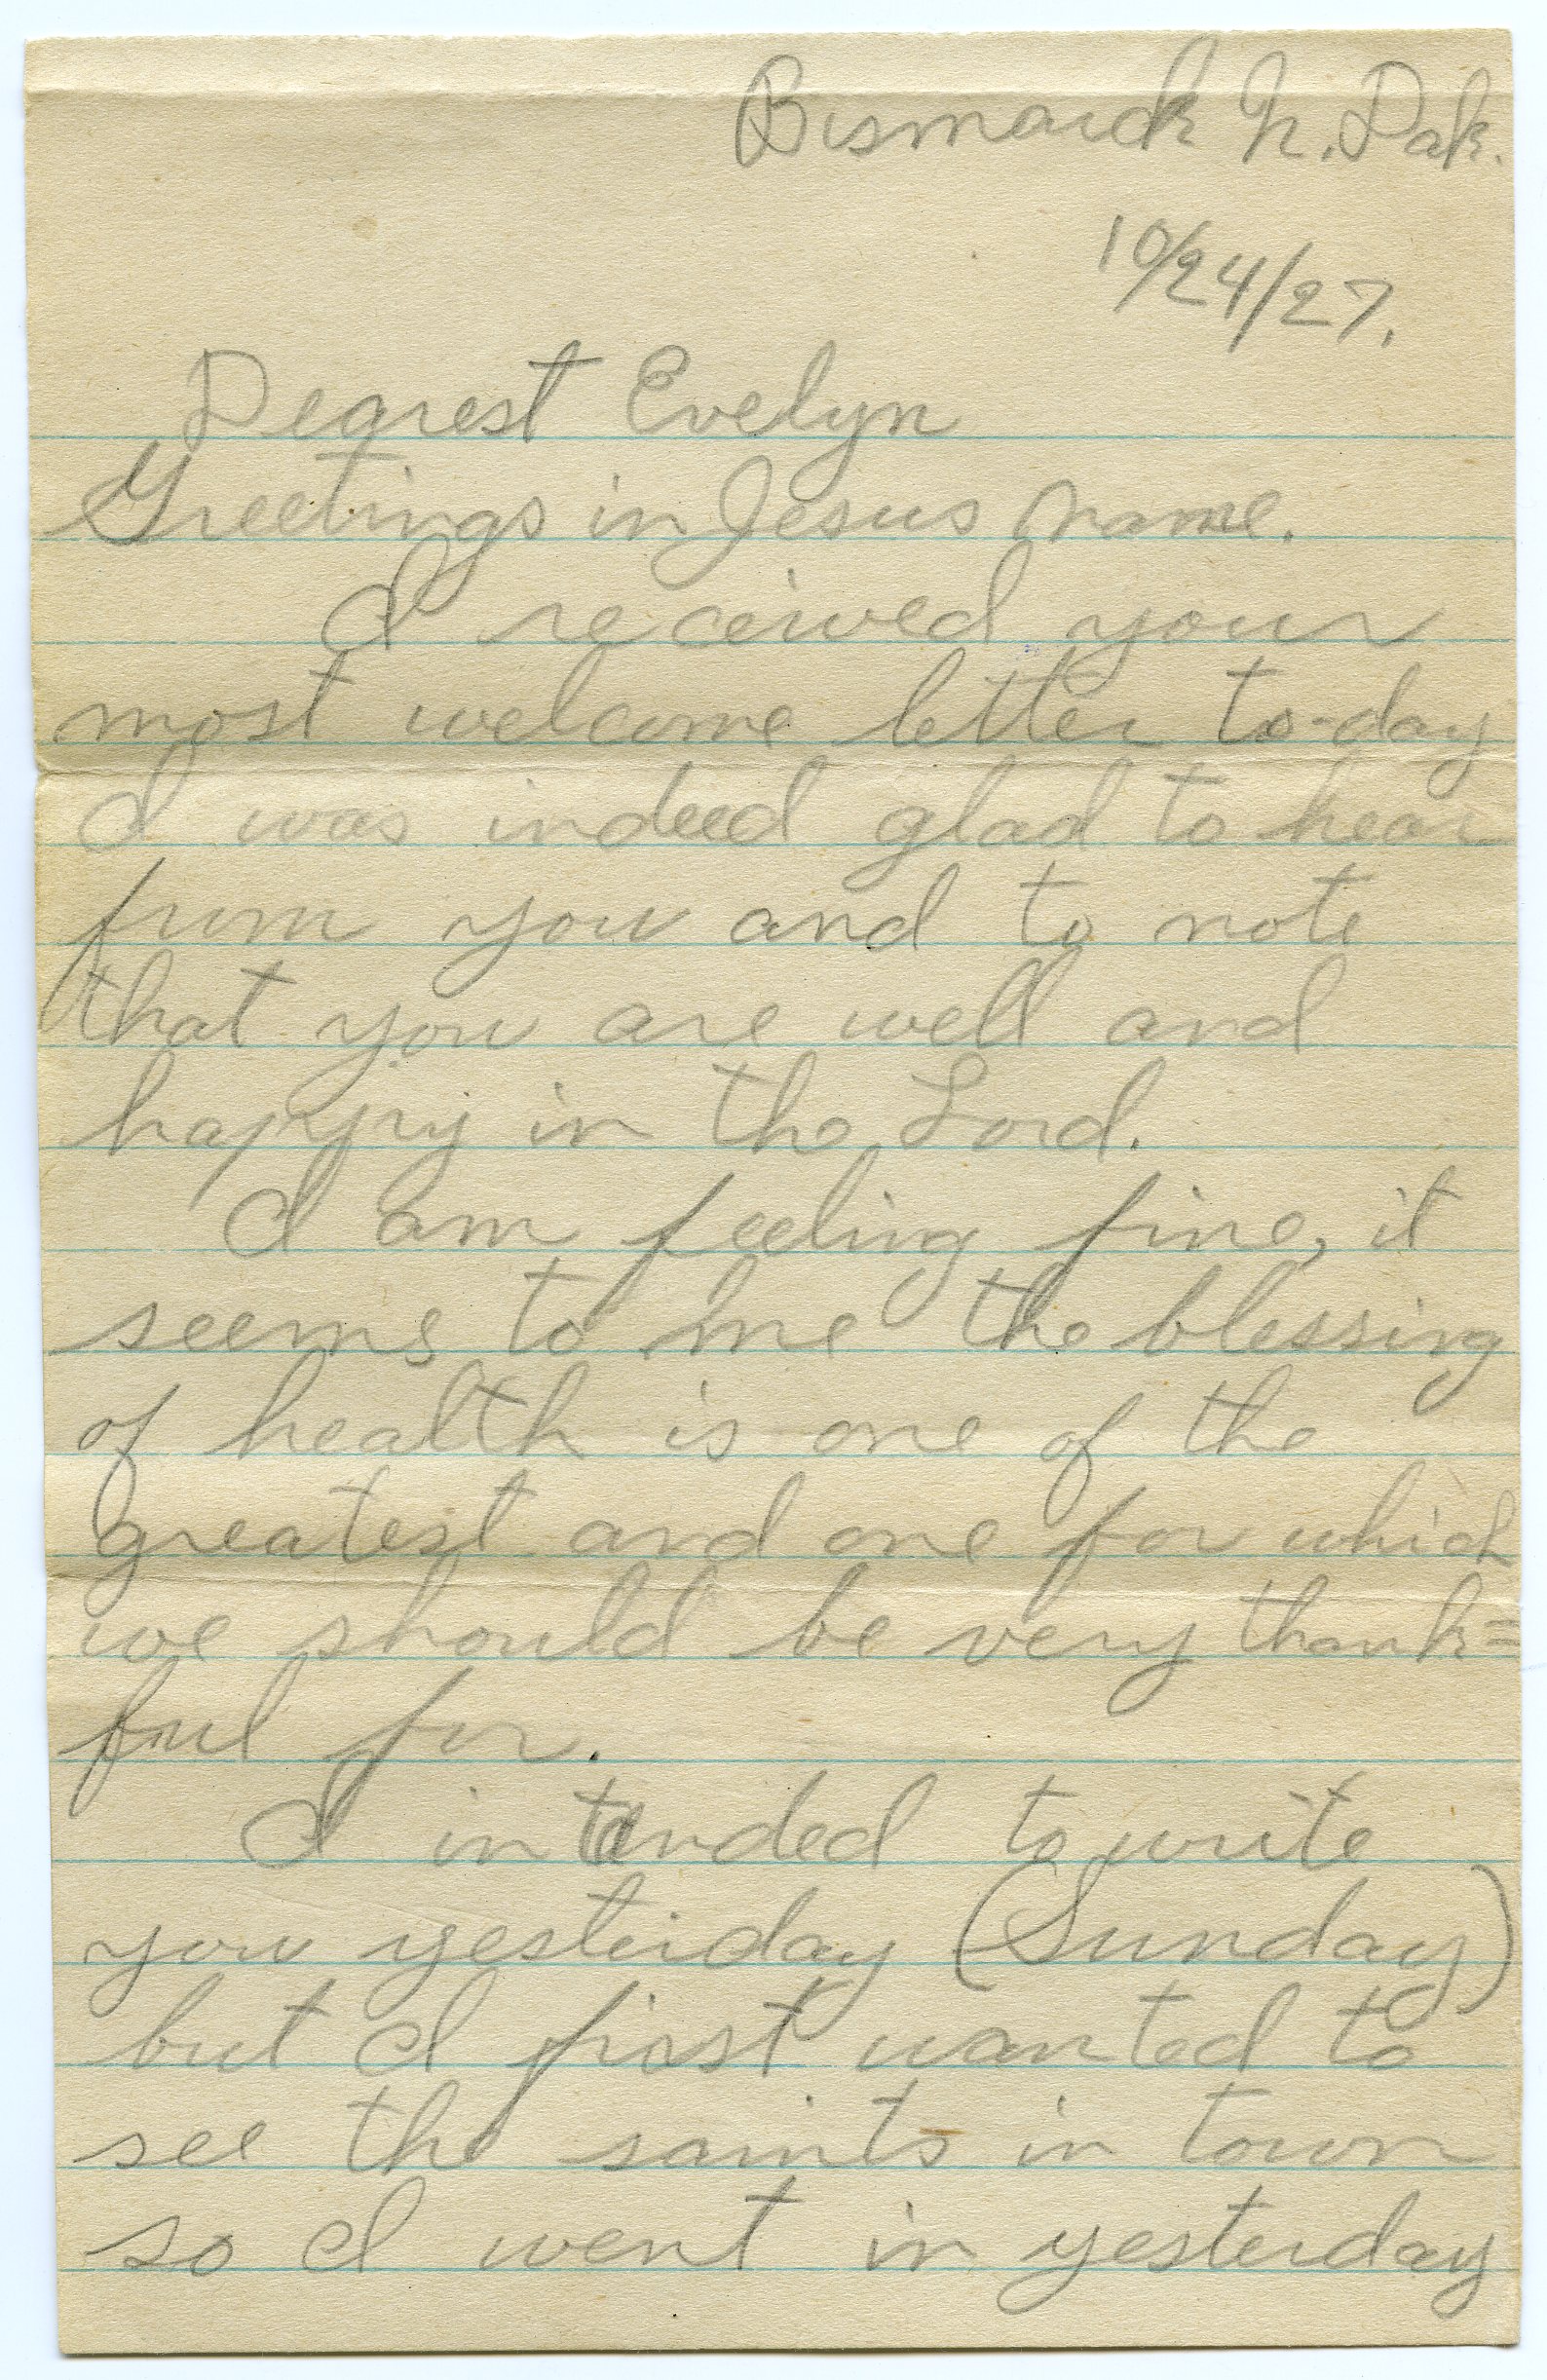 Bismarck N. Dak.
10/24/27.
Dearest Evelyn
Greetings in Jesus Name.
I received your
most welcome letter to-day
I was indeed glad to hear
from you and to note
that you are well and
happy in the Lord.
I am feeling fine, it
seems to me the blessing
of health is one of the
greatest and one for which
we should be very thank=
ful for.
I intended to write
you yesterday (Sunday)
but I first wanted to
see the saints in town
so I went in yesterday